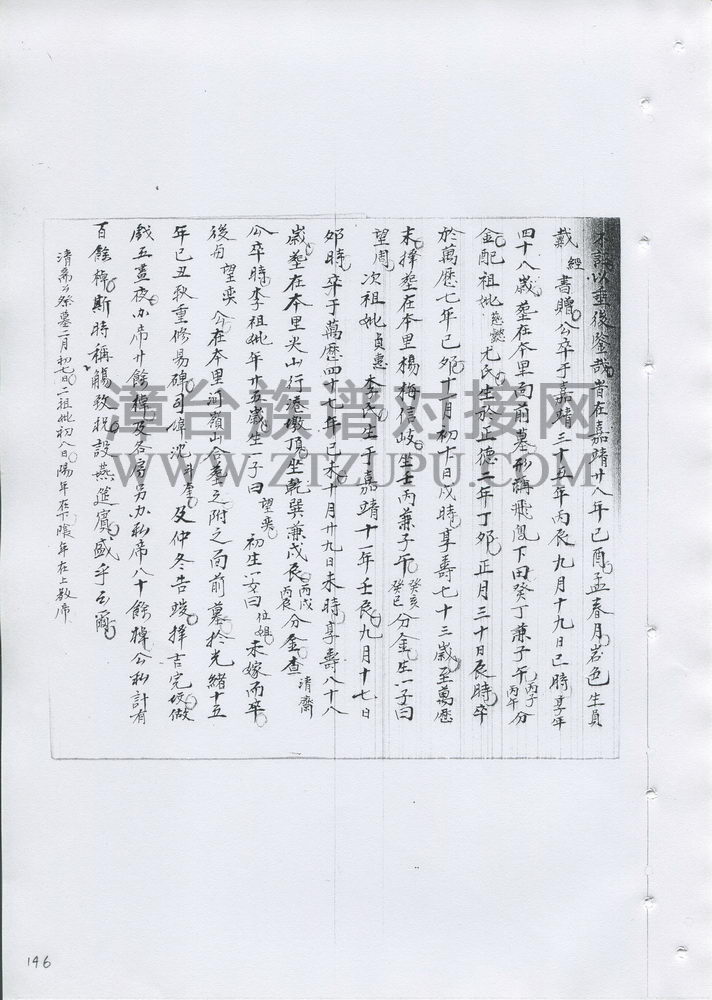 不詳以垂後鑒哉昔在嘉靖廿八年己酉孟春月岩邑生員
戴經書贈公卒于嘉靖三十五年丙辰九月十九日巳時享年
四十八歲塟在夲里面前墓形稱飛鳳下田癸丁兼子午丙子丙午分
金配祖妣慈懿尤氏生於正德二年丁卯正月三十日辰時卒
於萬曆七年己卯十一月初十日戌時享壽七十三歲至萬曆
末擇塟在夲里楊梅信岐坐壬丙兼子午癸亥癸巳分金生一子曰
望周次祖妣貞惠李氏生于嘉靖十一年壬辰九月十七日
卯時卒于萬曆四十七年己未十月廿九日未時享壽八十八
歲塟在夲里尖山行港墩頂坐乾巽兼戌辰丙戌丙辰分金查清齋
公卒時李祖妣年廿五歲生一子曰望奕初生一女曰位姐未嫁而卒
後与望奕公在夲里河嶺山合塟之附之面前墓扵光緒十五
年己丑秋重修易碑司倬沈及仲冬告竣擇吉完竣做
戲五晝夜办席廿餘棹及各房另办私席八十餘棹公私計有
百餘棹斯時稱觴致祝設燕進賓盛乎云爾
清齋公祭墓二月初七日二祖妣初八日陽年在下陰年在上敦席
漳台族谱对接网
WWW.ZTZUPU.COM
146